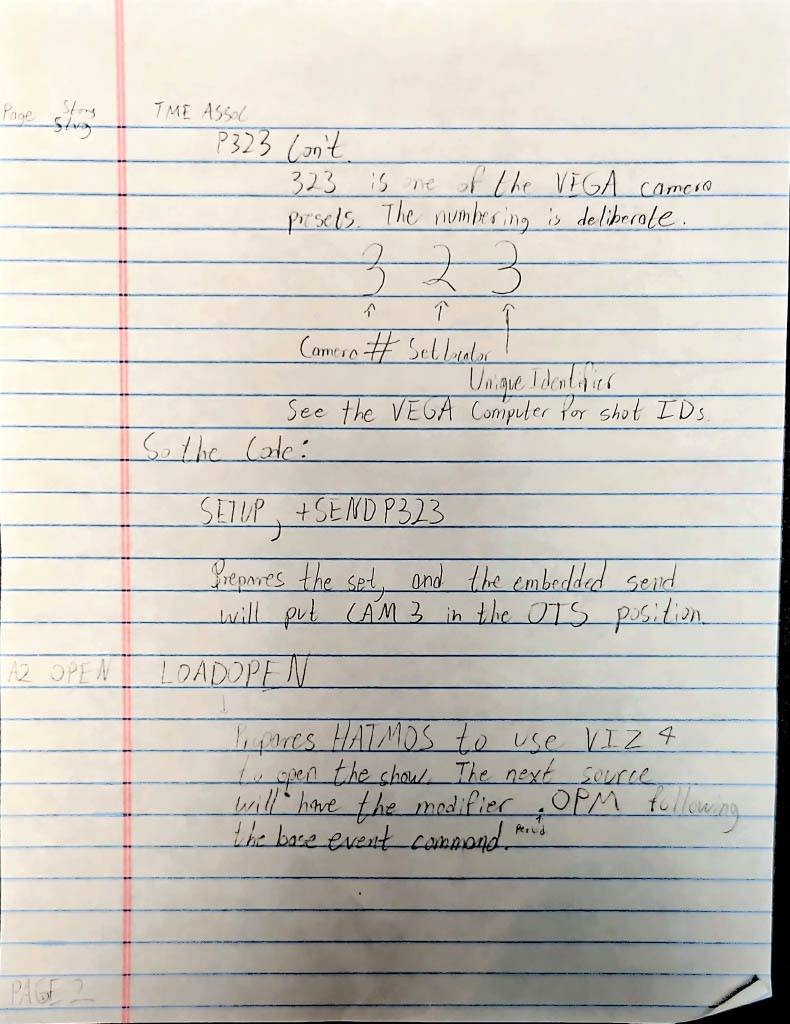 Page Story Slug TME ASSOC
P323 Con't.
323 is one of the VEGA camera
presets. The numbering is deliberate.
3 2 3
↑ ↑ ↑
Camera # Set locator
Unique Identifier
See the VEGA Computer for shot IDs.
So the Code:
SETUP, +SENDP323
Prepares the set, and the embedded send
will put CAM 3 in the OTS position.
A2 OPEN LOADOPEN
↓
Prepares HATMOS to use VIZ 4
to open the show. The next source
will have the modifier .OPM following
↑
Period
the base event command.
PAGE 2